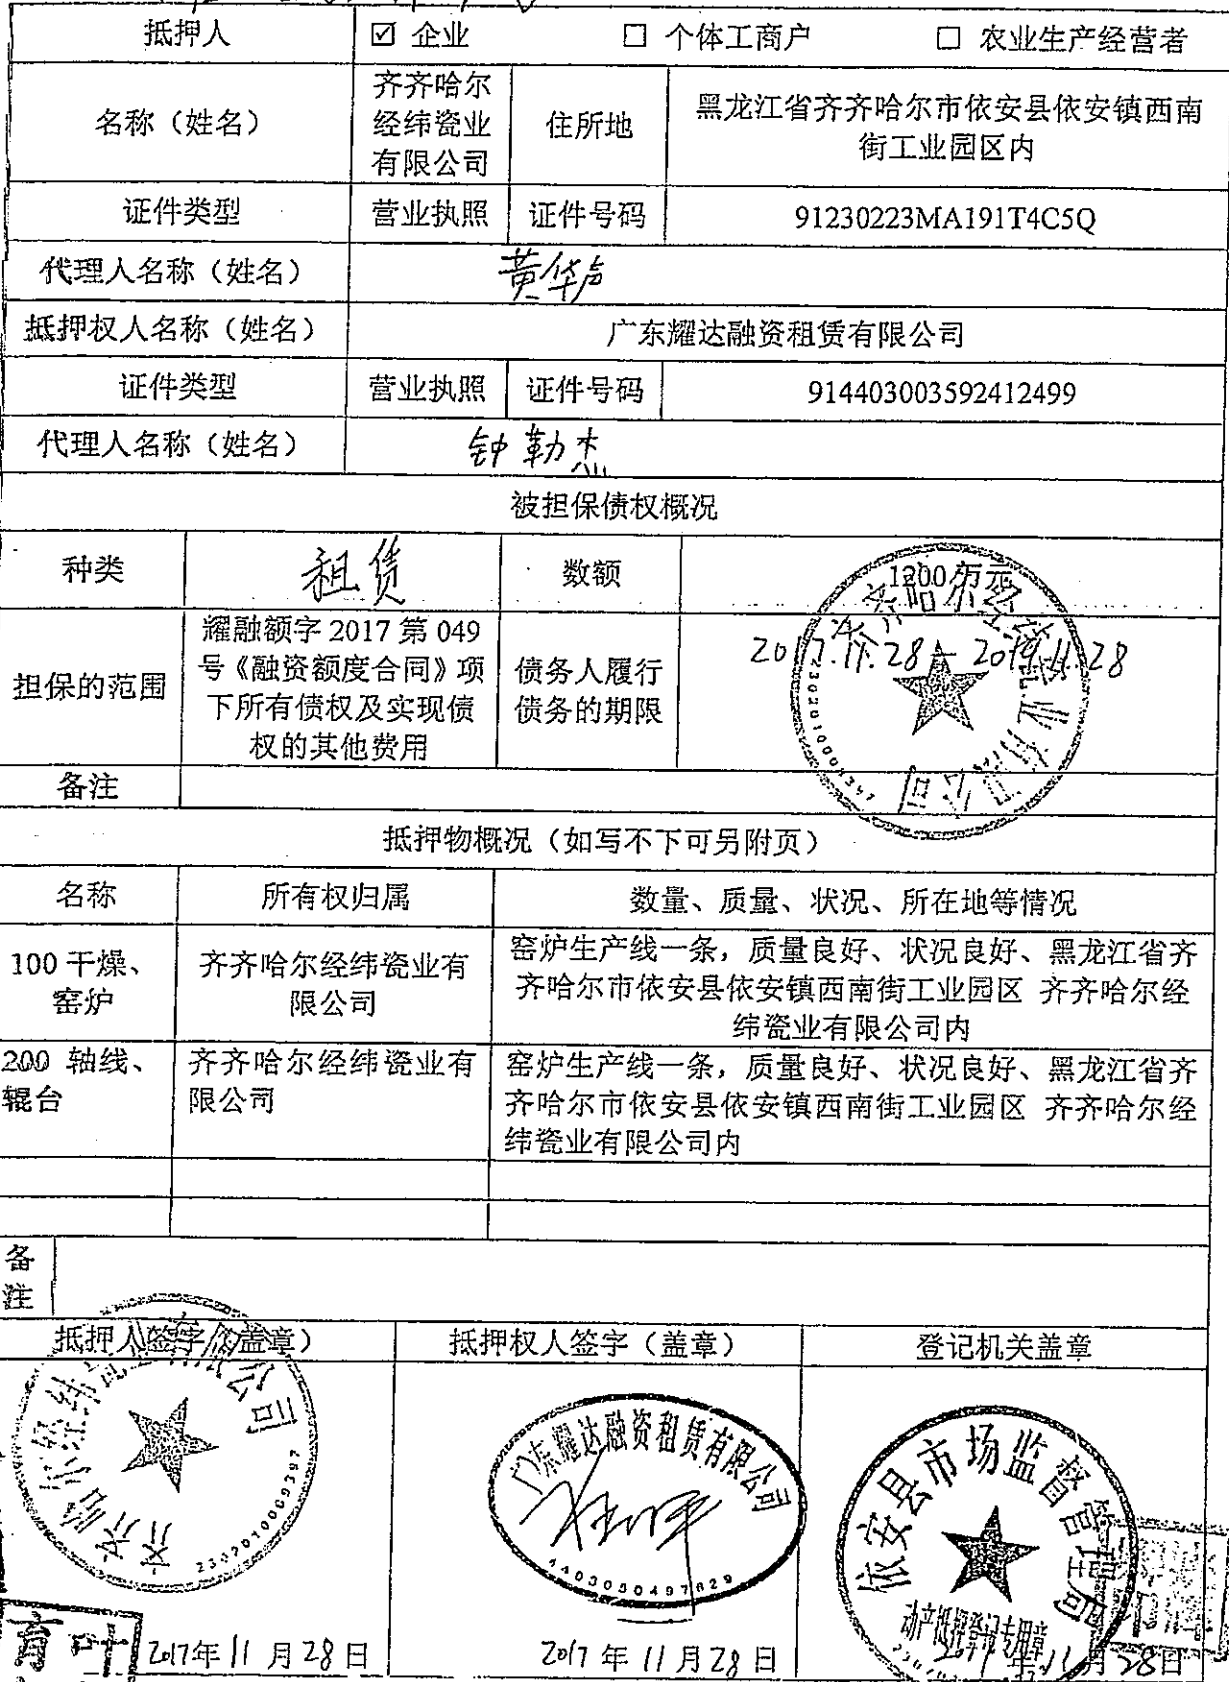 抵押人 ☑ 企业 □ 个体工商户 □ 农业生产经营者
名称（姓名） 齐齐哈尔经纬瓷业有限公司 住所地 黑龙江省齐齐哈尔市依安县依安镇西南街工业园区内
证件类型 营业执照 证件号码 91230223MA191T4C5Q
代理人名称（姓名） 黄华声
抵押权人名称（姓名） 广东耀达融资租赁有限公司
证件类型 营业执照 证件号码 914403003592412499
代理人名称（姓名） 钟勤杰
被担保债权概况
种类 租赁 数额 1200万元
担保的范围 耀融额字 2017 第 049 号《融资额度合同》项下所有债权及实现债权的其他费用 债务人履行债务的期限 2017.11.28-2019.11.28
备注
抵押物概况（如写不下可另附页）
名称 所有权归属 数量、质量、状况、所在地等情况
100 干燥、窑炉 齐齐哈尔经纬瓷业有限公司 窑炉生产线一条，质量良好、状况良好、黑龙江省齐齐哈尔市依安县依安镇西南街工业园区 齐齐哈尔经纬瓷业有限公司内
200 轴线、辊台 齐齐哈尔经纬瓷业有限公司 窑炉生产线一条，质量良好、状况良好、黑龙江省齐齐哈尔市依安县依安镇西南街工业园区 齐齐哈尔经纬瓷业有限公司内
备注
抵押人签字（盖章） 抵押权人签字（盖章） 登记机关盖章
齐齐哈尔经纬瓷业有限公司
2302010009397
广东耀达融资租赁有限公司
4403050497829
依安县市场监督管理局
动产抵押登记专用章
2017年 11 月 28 日 2017 年 11 月 28 日 2017 年 11 月 28 日